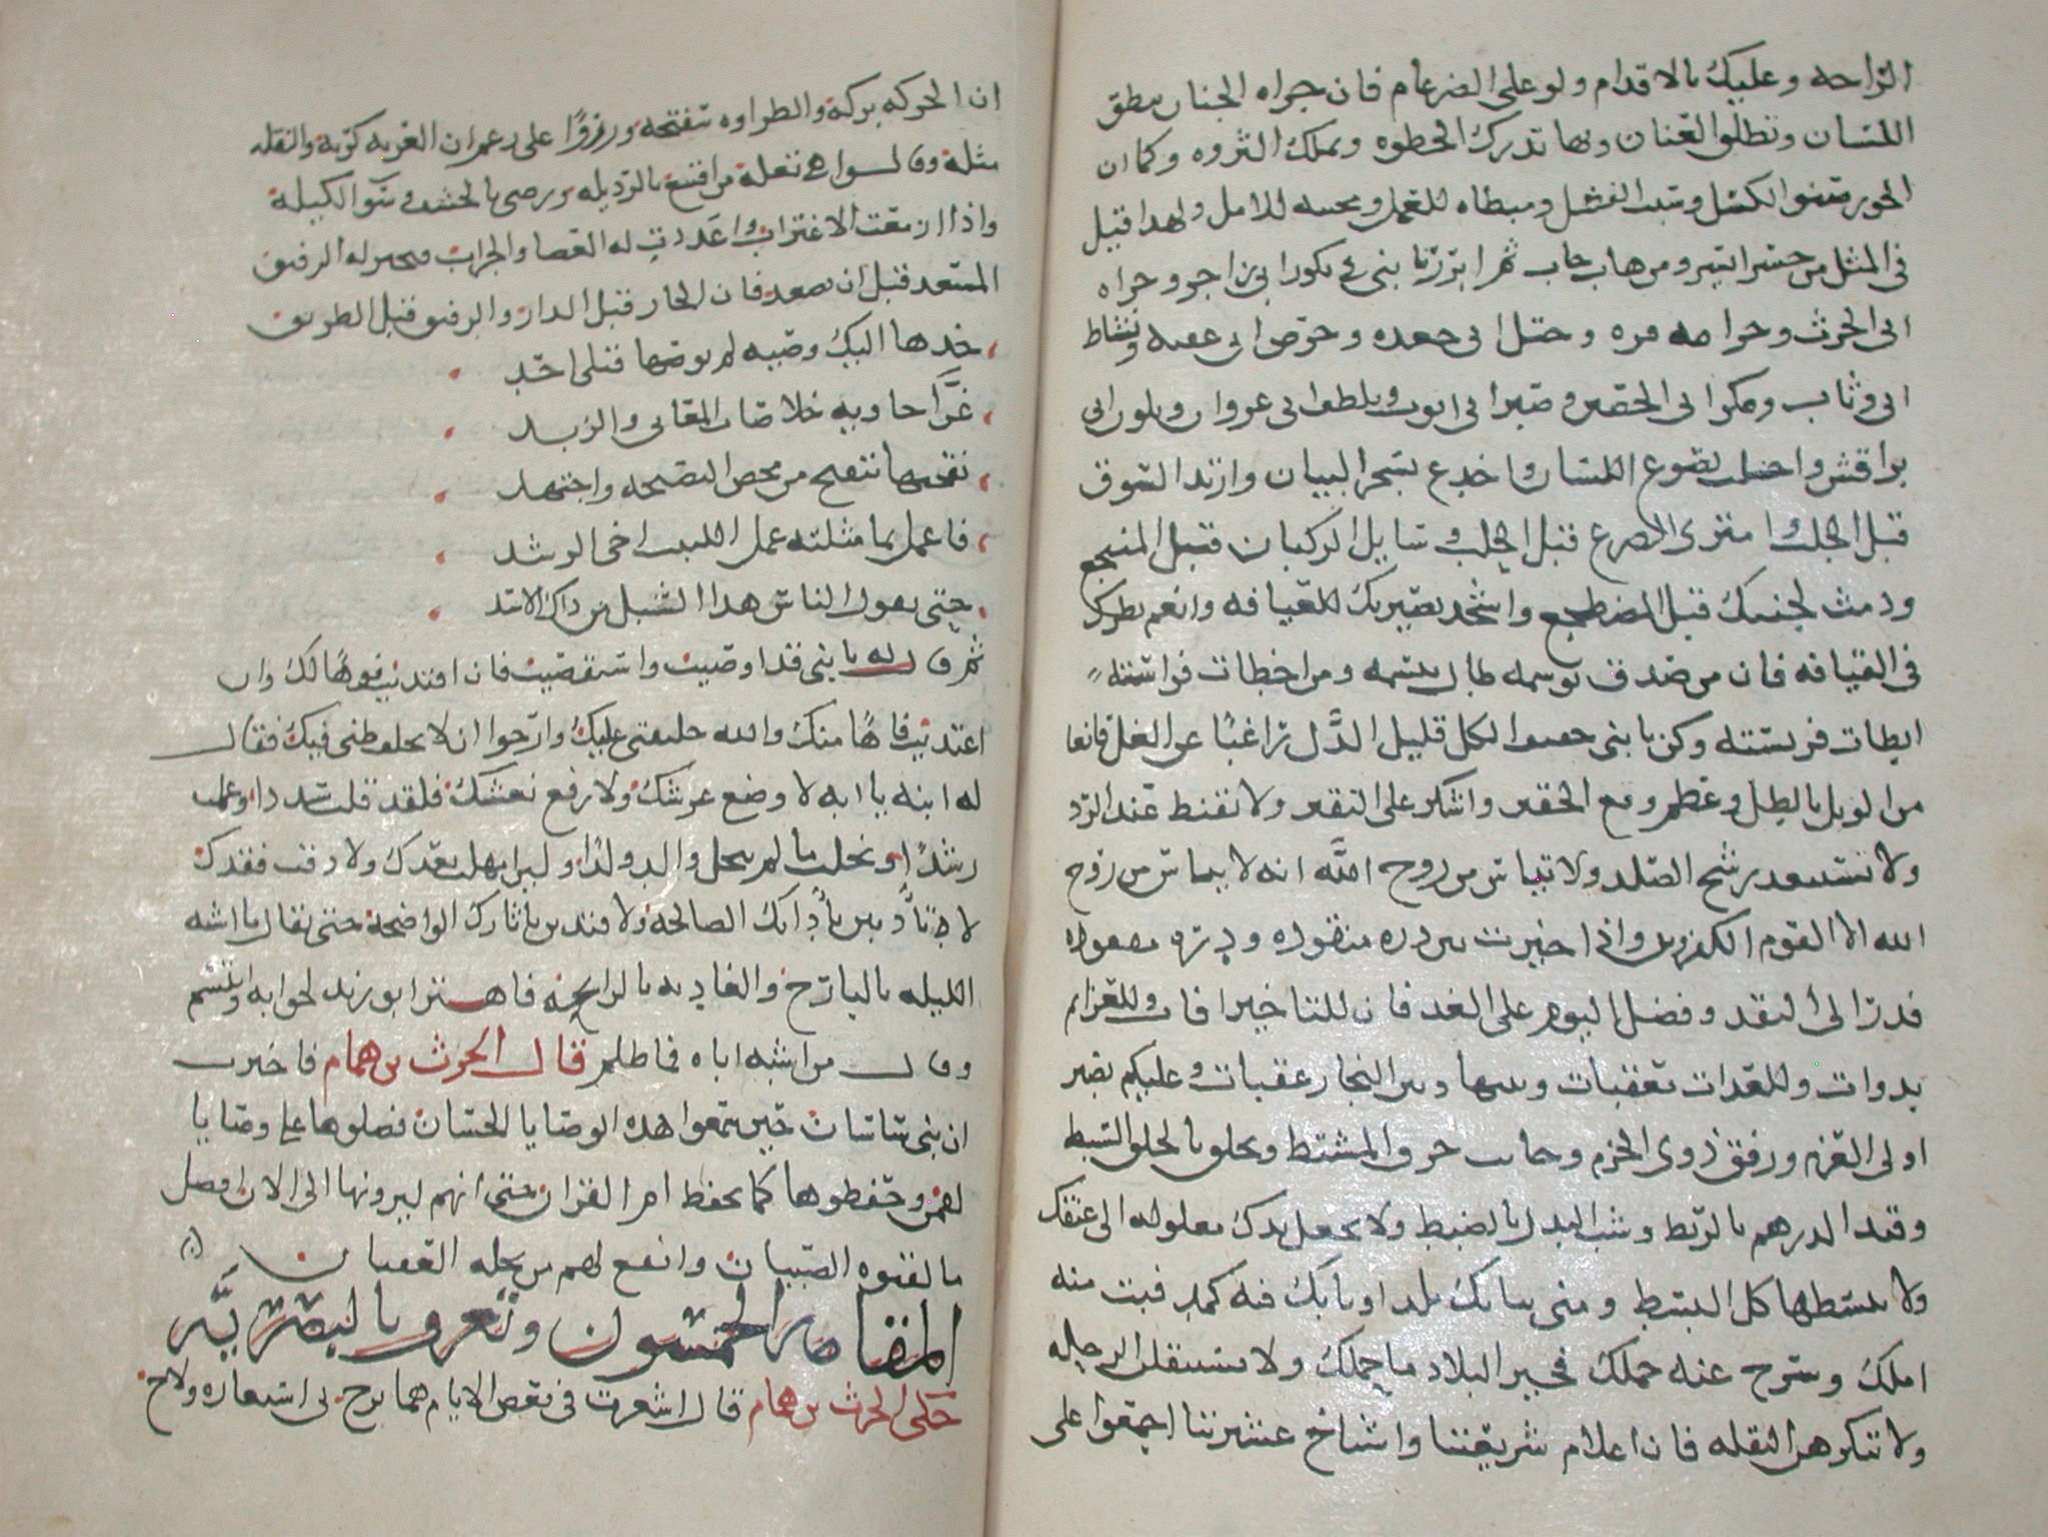 الراحه وعليك بالاقدام ولو على الضرغام فان جراه الجنان ينطق
اللسان وتطلق العنان وبها تدرك الحظوه وتملك الثروه وكما ان
الخور صنو الكسل وسبب الفشل ومبطاه للعمل ومخيبه للامل ولهذا قيل
في المثل من جسر ايسر ومن هاب خاب ثم ابرز يا بني في بكور ابي زاجر وجراه
ابي الحرث وحزامه ابي قره وختل ابي جعده وحرص ابي عقبه ونشاط
ابي وثاب ومكر ابي الحصين وصبر ابي ايوب وتلطف ابي غزوان وتلون ابي
براقش واخلب بصوغ اللسان واخدع بسحر البيان وارتد السوق
قبل الجلب وامتر الضرع قبل الحلب وسايل الركبان قبل المنتجع
ودمث لجنبك قبل المضطجع واشحذ بصيرتك للعيافه وانعم نظرك
في القيافه فان من صدق توسمه طال تبسمه ومن اخطات فراسته
ابطات فريسته وكن يا بني خفيف الكل قليل الدل راغبا عن العل قانعا
من الوبل بالطل وعظم وقع الحقير واشكر على النقير ولا تقنط عند الرد
ولا تستبعد رشح الصلد ولا تياس من روح الله انه لا يياس من روح
الله الا القوم الكفرون واذا خيرت بين ذره منقوده ودره موعوده
فمل الى النقد وفضل اليوم على الغد فان للتاخير افات وللعزايم
بدوات وللعدات معقبات وبينها وبين النجاز عقبات وعليكم بصبر
اولى العزم ورفق ذوى الحزم وجانب خرق المشتط وتخلق بالخلق السبط
وقيد الدرهم بالربط وشب البذل بالضبط ولا تجعل يدك مغلوله الى عنقك
ولا تبسطها كل البسط ومتى نبا بك بلد او نابك فيه كمد فبت منه
املك وسرح عنه جملك فخير البلاد ما جملك ولا تستثقلن الرحله
ولا تكرهن النقله فان اعلام شريعتنا واشياخ عشيرتنا اجمعوا على
ان الحركه بركه والطراوه سفتجه وزروا على من زعم ان الغربه كربه والنقله
مثله وقالوا هى تعله من اقتنع بالرذيله ورضى بالحشف وسو الكيله
واذا ازمعت الاغتراب واعددت له العصا والجراب فتخير له الرفيق
المسعد قبل ان تصعد فان الجار قبل الدار والرفيق قبل الطريق
خذها اليك وصيه لم يوصها قبلى احد
غرا حاويه خلاصات المعاني والزبد
نقحتها تنقيح من محض النصيحه واجتهد
فاعمل بما مثلته عمل اللبيب اخى الرشد
حتى يقول الناس هذا الشبل من ذاك الاسد
ثم قال له يا بني قد اوصيت واستقصيت فان اقتديت فواها لك وان
اعتديت فاها منك والله خليفتى عليك وارجوا ان لا يخلف ظنى فيك فقال
له ابنه يا ابه لا وضع عرشك ولا رفع نعشك فلقد قلت سددا وعلمت
رشدا ونحلت ما لم ينحل والد ولدا ولين امهلت بعدك ولا ذقت فقدك
لا تادبن بادابك الصالحه ولا قتدين باثارك الواضحه حتى يقال ما اشبه
الليله بالبارحه والغاديه بالرايحه فاهتز ابو زيد لجوابه وابتسم
وقال من اشبه اباه فما ظلم قال الحرث بن همام فاخبرت
ان بني ساسان حين سمعوا هذه الوصايا الحسان فضلوها على وصايا
لقمن وحفظوها كما يحفظ ام القران حتى انهم ليرونها الى الان افضل
ما لقنوه الصبيان وانفع لهم من نحله العقيان
المقامه الخمسون وتعرف بالبصريه
حكى الحرث بن همام قال اشعرت في بعض الايام هما برح بى استعاره ولاح